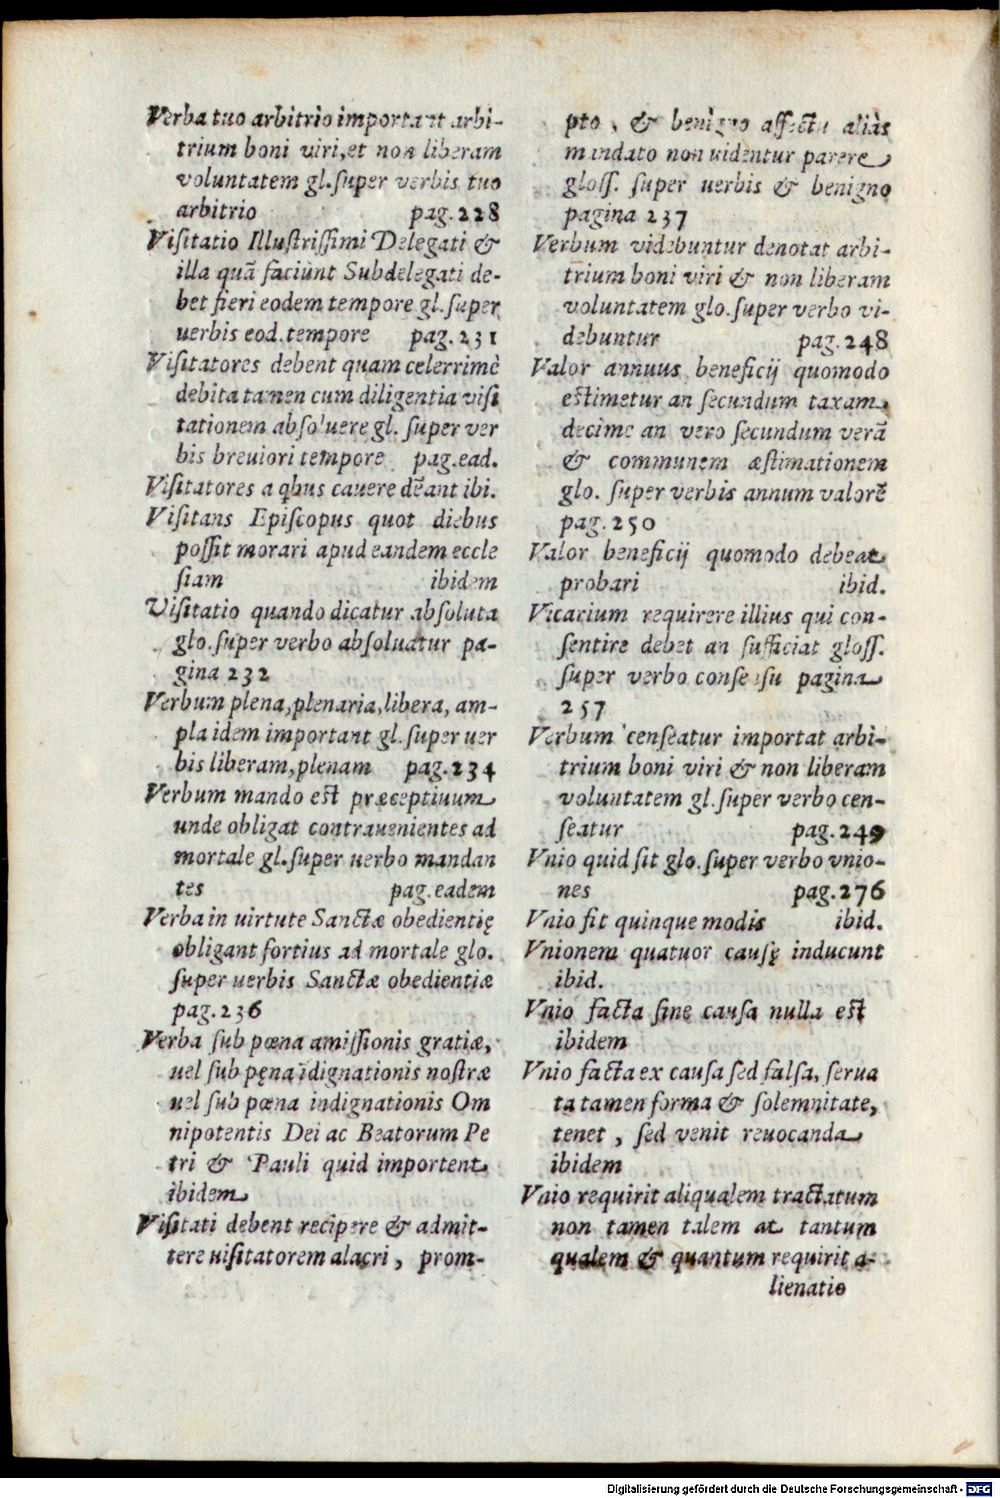 Verba tuo arbitrio important arbi-
trium boni viri, et non liberam
voluntatem gl. ſuper verbis tuo
arbitrio pag. 228
Viſitatio Illuſtriſſimi Delegati &
illa quā faciunt Subdelegati de-
bet fieri eodem tempore gl. ſuper
uerbis eod. tempore pag. 231
Viſitatores debent quam celerrimè
debita tamen cum diligentia viſi
tationem abſoluere gl. ſuper ver
bis breuiori tempore pag. ead.
Viſitatores a qbus cauere dēant ibi.
Viſitans Epiſcopus quot diebus
poſſit morari apud eandem eccle
ſiam ibidem
Viſitatio quando dicatur abſoluta
glo. ſuper verbo abſoluatur pa-
gina 232
Verbum plena, plenaria, libera, am-
pla idem important gl. ſuper uer
bis liberam, plenam pag. 234
Verbum mando est præceptiuum
unde obligat contrauenientes ad
mortale gl. ſuper uerbo mandan
tes pag. eadem
Verba in uirtute Sanctæ obedientię
obligant fortius ad mortale glo.
ſuper uerbis Sanctæ obedientiæ
pag. 236
Verba ſub pœna amiſſionis gratiæ,
uel ſub pęna īdignationis noſtræ
uel ſub pœna indignationis Om
nipotentis Dei ac Beatorum Pe
tri & Pauli quid importent
ibidem
Viſitati debent recipere & admit-
tere uiſitatorem alacri, prom-
pto, & benigno affectu aliàs
mandato non uidentur parere
gloſſ. ſuper uerbis & benigno
pagina 237
Verbum videbuntur denotat arbi-
trium boni viri & non liberam
voluntatem glo. ſuper verbo vi-
debuntur pag. 248
Valor annuus beneficij quomodo
estimetur an ſecundum taxam
decime an vero ſecundum verā
& communem æſtimationem
glo. ſuper verbis annum valorē
pag. 250
Valor beneficij quomodo debeat
probari ibid.
Vicarium requirere illius qui con-
ſentire debet an ſufficiat gloſſ.
ſuper verbo conſenſu pagina
257
Verbum cenſeatur importat arbi-
trium boni viri & non liberam
voluntatem gl. ſuper verbo cen-
ſeatur pag. 249
Vnio quid ſit glo. ſuper verbo vnio-
nes pag. 276
Vnio fit quinque modis ibid.
Vnionem quatuor cauſę inducunt
ibid.
Vnio facta ſine cauſa nulla est
ibidem
Vnio facta ex cauſa ſed falſa, ſerua
ta tamen forma & ſolemnitate,
tenet, ſed venit reuocanda
ibidem
Vnio requirit aliqualem tractatum
non tamen talem at tantum
qualem & quantum requirit a-
lienatio
Digitalisierung gefördert durch die Deutsche Forschungsgemeinschaft - DFG